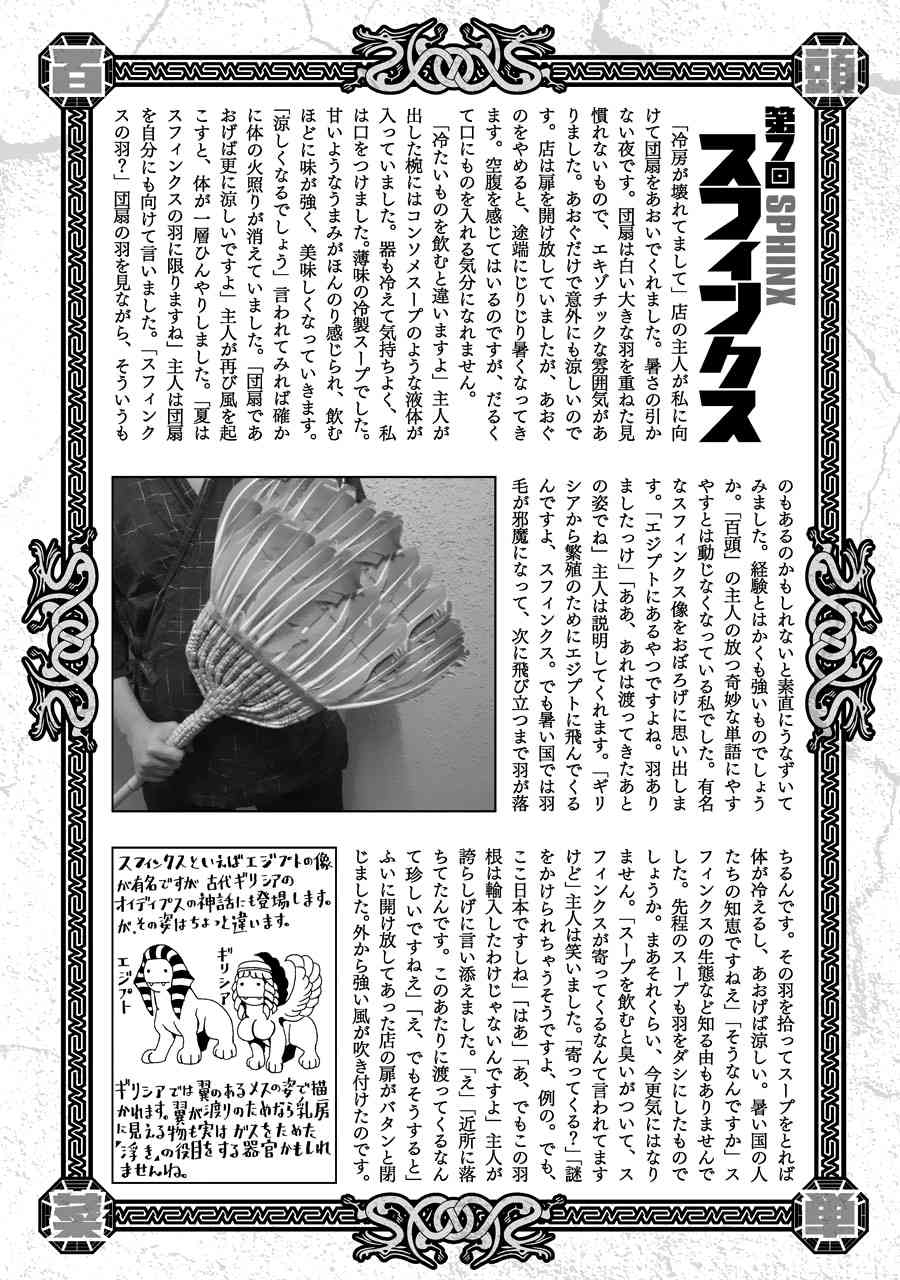 百頭
菜単
第7回 SPHINX
スフィンクス
「冷房が壊れてまして」店の主人が私に向
けて団扇をあおいでくれました。暑さの引か
ない夜です。団扇は白い大きな羽を重ねた見
慣れないもので、エキゾチックな雰囲気があ
りました。あおぐだけで意外にも涼しいので
す。店は扉を開け放していましたが、あおぐ
のをやめると、途端にじりじり暑くなってき
ます。空腹を感じてはいるのですが、だるく
て口にものを入れる気分になれません。
「冷たいものを飲むと違いますよ」主人が
出した椀にはコンソメスープのような液体が
入っていました。器も冷えて気持ちよく、私
は口をつけました。薄味の冷製スープでした。
甘いようなうまみがほんのり感じられ、飲む
ほどに味が強く、美味しくなっていきます。
「涼しくなるでしょう」言われてみれば確か
に体の火照りが消えていました。「団扇であ
おげば更に涼しいですよ」主人が再び風を起
こすと、体が一層ひんやりしました。「夏は
スフィンクスの羽に限りますね」主人は団扇
を自分にも向けて言いました。「スフィンク
スの羽？」団扇の羽を見ながら、そういうも
のもあるのかもしれないと素直にうなずいて
みました。経験とはかくも強いものでしょう
か。「百頭」の主人の放つ奇妙な単語にやす
やすとは動じなくなっている私でした。有名
なスフィンクス像をおぼろげに思い出しま
す。「エジプトにあるやつですよね。羽あり
ましたっけ」「ああ、あれは渡ってきたあと
の姿でね」主人は説明してくれます。「ギリ
シアから繁殖のためにエジプトに飛んでくる
んですよ、スフィンクス。でも暑い国では羽
毛が邪魔になって、次に飛び立つまで羽が落
ちるんです。その羽を拾ってスープをとれば
体が冷えるし、あおげば涼しい。暑い国の人
たちの知恵ですねえ」「そうなんですか」ス
フィンクスの生態など知る由もありませんで
した。先程のスープも羽をダシにしたもので
しょうか。まあそれくらい、今更気にはなり
ません。「スープを飲むと臭いがついて、ス
フィンクスが寄ってくるなんて言われてます
けど」主人は笑いました。「寄ってくる？」「謎
をかけられちゃうそうですよ、例の。でも、
ここ日本ですしね」「はあ」「あ、でもこの羽
根は輸入したわけじゃないんですよ」主人が
誇らしげに言い添えました。「え」「近所に落
ちてたんです。このあたりに渡ってくるなん
て珍しいですねえ」「え、でもそうすると」
ふいに開け放してあった店の扉がバタンと閉
じました。外から強い風が吹き付けたのです。
スフィンクスといえばエジプトの像
が有名ですが 古代ギリシアの
オイディプスの神話にも登場します。
が、その姿はちょっと違います。
ギリシア
エジプト
ギリシアでは翼のあるメスの姿で描
かれます。翼が渡りのためなら乳房
に見える物も実は ガスをためた
「浮き」の役目をする器官かもしれ
ませんね。